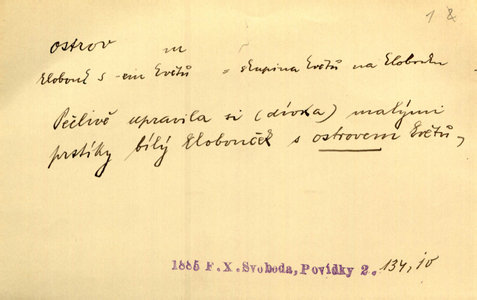 1 &
ostrov m
klobouk s -em květů = skupina květů na klobouku
Pečlivě upravila si (dívka) malými
prstíky bílý klobouček s ostrovem květů,
1885 F. X. Svoboda, Povídky 2. 134, iv